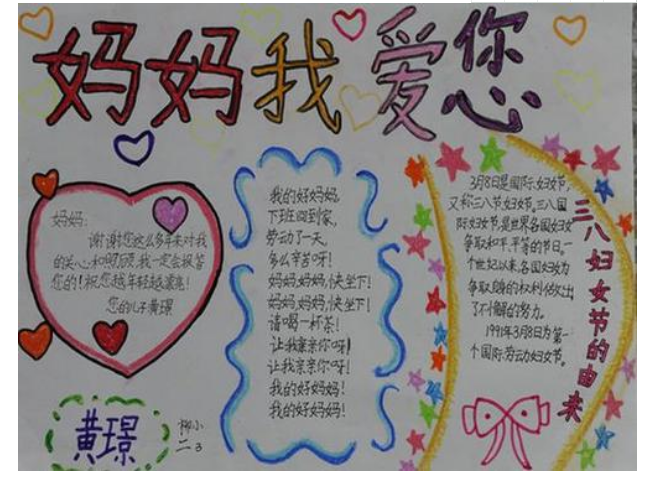 妈妈我爱您
妈妈:
谢谢您这么多年来对我
的关心和照顾,我一定会报答
您的!祝您越年轻越漂亮!
您的儿子黄璟
黄璟
柳小
二3
我的好妈妈,
下班回到家,
劳动了一天,
多么辛苦呀!
妈妈,妈妈,快坐下!
妈妈,妈妈,快坐下!
请喝一杯茶!
让我亲亲你呀!
让我亲亲你呀!
我的好妈妈!
我的好妈妈!
3月8日是国际妇女节,
又称三八节妇女节,三八国
际妇女节,是世界各国妇女
争取和平、平等的节日。一
个世纪以来,各国妇女为
争取她的权利付出
了不懈的努力。
1991年3月8日为第一
个国际劳动妇女节。
三八妇女节的由来